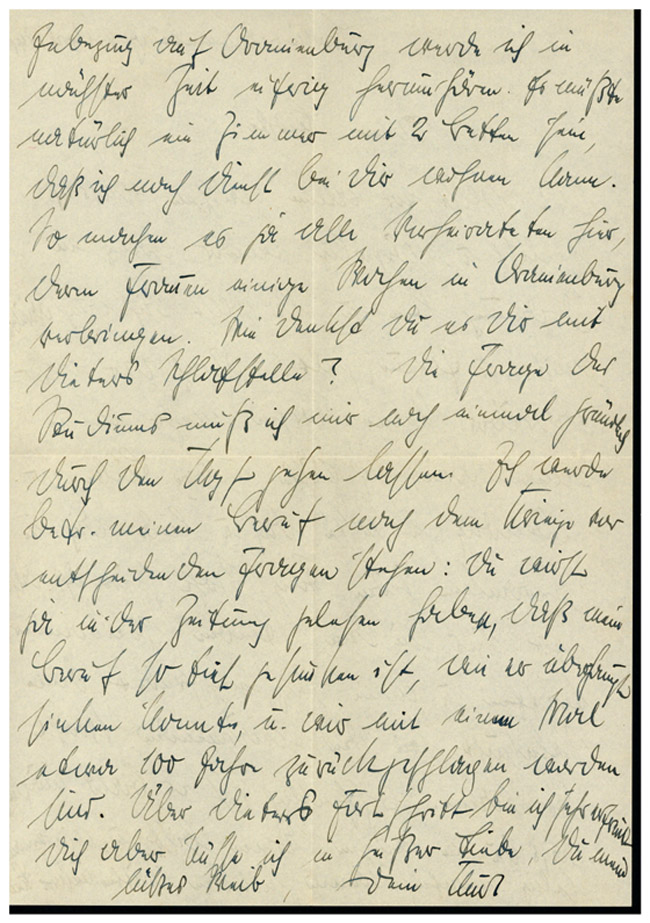 Inbezug auf Oranienburg werde ich in
nächster Zeit eifrig herumhören. Es müßte
natürlich ein Zimmer mit 2 Betten sein,
daß ich nach Dienst bei Dir wohnen kann.
So machen es ja alle Verheirateten hier,
deren Frauen einige Wochen in Oranienburg
verbringen. Wie denkst Du es Dir mit
Dieters Schlafstelle? Die Frage des
Studiums muß ich mir noch einmal gründlich
durch den Kopf gehen lassen. Ich werde
betr. meinen Beruf nach dem Kriege vor
entscheidenden Fragen stehen: Du wirst
ja in der Zeitung gelesen haben, daß mein
Beruf so tief gesunken ist, wie er überhaupt
sinken konnte, u. wir mit einem Mal
etwa 100 Jahre zurückgeschlagen worden
sind. Über Dieters Fortschritt bin ich sehr erfreut
Dich aber küsse ich in heißer Liebe, Du mein
süßes Weib, Dein Kurt